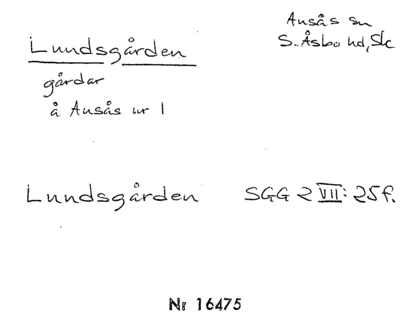 Lundsgården
Ausås sn
S. Åsbo hd, Sk
gårdar
å Ausås nr 1
Lundsgården SGG 2 VII: 25 f.
Nr 16475